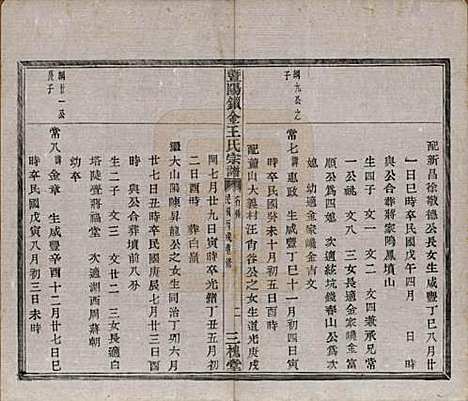 配新昌徐敬德公長女生咸豐丁巳八月廿
一日巳時卒民國戊午四月 日 時
與公合葬蔣家鳴鳳墳山
生四子 文一 文二 文四兼承兄常
一公祧 文八 三女長適金家
順公為媳 次適 坑錢春山公為次
媳 幼適金家 金吉文
綱九公之
子
常七 惠政 生咸豐丁巳十一月初四日
時卒民國癸未十月初五日酉時
配董山大義村汪 公之女生道光庚戌
暨陽鎖金王氏宗譜
三槐堂
閏七月廿九日寅時卒光緒丁丑五月初
二日酉時 葬白
繼大山陽陳昇龍公之女生同治丁卯六月
廿八日丑時卒民國庚辰七月廿七日
時與公合葬墳前八分
生二子 文三 文廿二 三女長適白
塔陡壹蔣福堂 次適湖西周蔣朝
幼卒
綱廿一公
長子
常八 金章 生咸豐辛酉十二月廿七日巳
時卒民國戊寅八月初三日未時